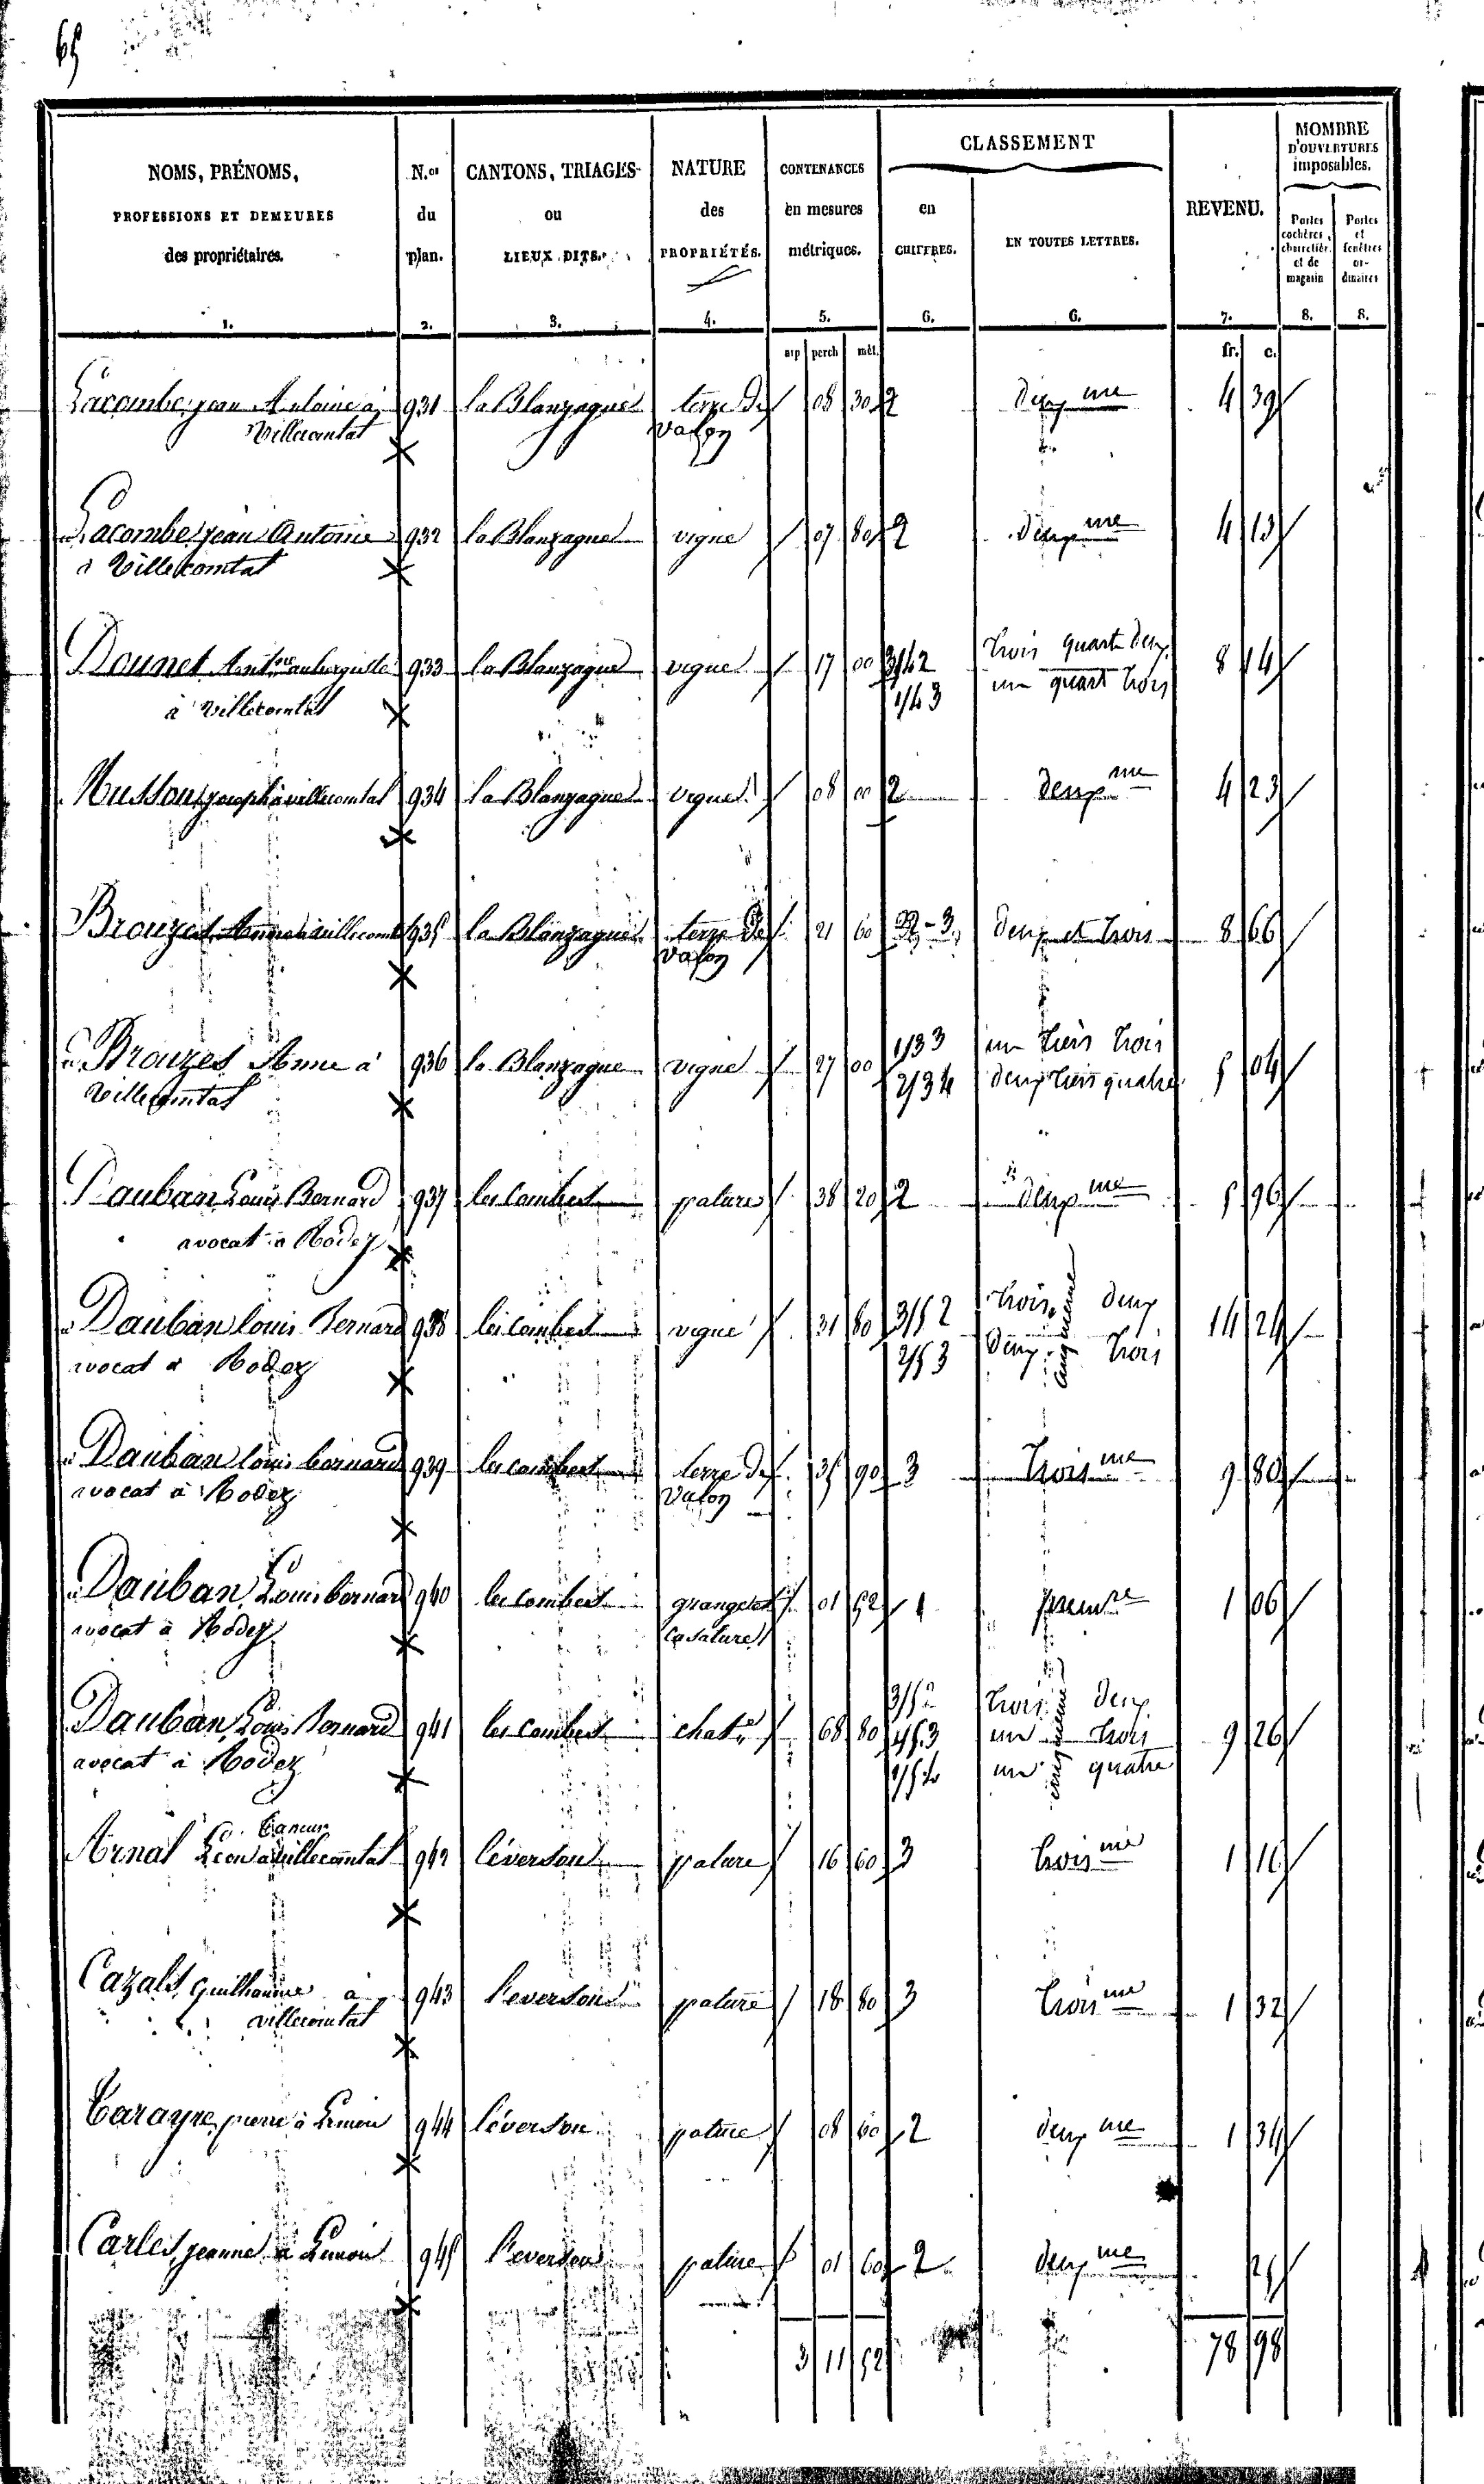 65
NOMS, PRÉNOMS, PROFESSIONS ET DEMEURES des propriétaires. 1.
N.os du plan. 2.
CANTONS, TRIAGES ou LIEUX DITS. 3.
NATURE des PROPRIÉTÉS. 4.
CONTENANCES en mesures métriques. 5.
CLASSEMENT
en CHIFFRES. 6.
EN TOUTES LETTRES. 6.
REVENU. 7.
NOMBRE D'OUVERTURES imposables.
Portes cochères, charretièr. et de magasin 8.
Portes et fenêtres ordinaires 8.
arp perch mèt. fr. c.
Lacombe jean Antoine à 931 la Blanzague terre de 08 30 2 deux me 4 39
Villecomtat vason
Lacombe jean Antoine 932 la Blanzague vigne 07 80 2 deux me 4 13
à Villecomtat
Dounet Antne aubergiste 933 la Blanzague vigne 17 00 3/4 2 trois quart deux 8 14
à Villecomtat 1/4 3 un quart trois
joseph à villecomtat 934 la Blanzague vigne 08 00 2 deux me 4 23
Brouzes Anne à villecomtat 935 la Blanzague terre de 21 60 2-3 deux et trois 8 66
vason
Brouzes Anne à 936 la Blanzague vigne 27 00 1/3 3 un tiers trois 5 04
Villecomtat 2/3 4 deux tiers quatre
Dauban Louis Bernard 937 les combes pature 38 20 2 deux me 5 96
avocat à Rodez
Dauban louis Bernard 938 les combes vigne 31 80 3/5 2 trois deux 14 24
avocat à Rodez 2/5 3 deux cinquieme trois
Dauban louis bernard 939 les combes terre de 35 90 3 trois me 9 80
avocat à Rodez vason
Dauban Louis bernard 940 les combes grange et 01 52 1 premre 1 06
avocat à Rodez
Dauban Louis Bernard 941 les combes chatre 68 80 3/5 2 trois deux 9 26
avocat à Rodez 1/5 3 un cinquieme trois
1/5 4 un quatre
Arnal Léon à villecomtat 942 l'éverson pature 16 60 3 trois me 1 16
Cazals Guilhaume à 943 l'everson pature 18 80 3 trois me 1 32
villecomtat
Tarayre pierre à 944 l'éverson pature 08 60 2 deux me 1 34
Carles jeanne à 945 l'everson pature 01 60 2 deux me 25
3 11 52 78 98